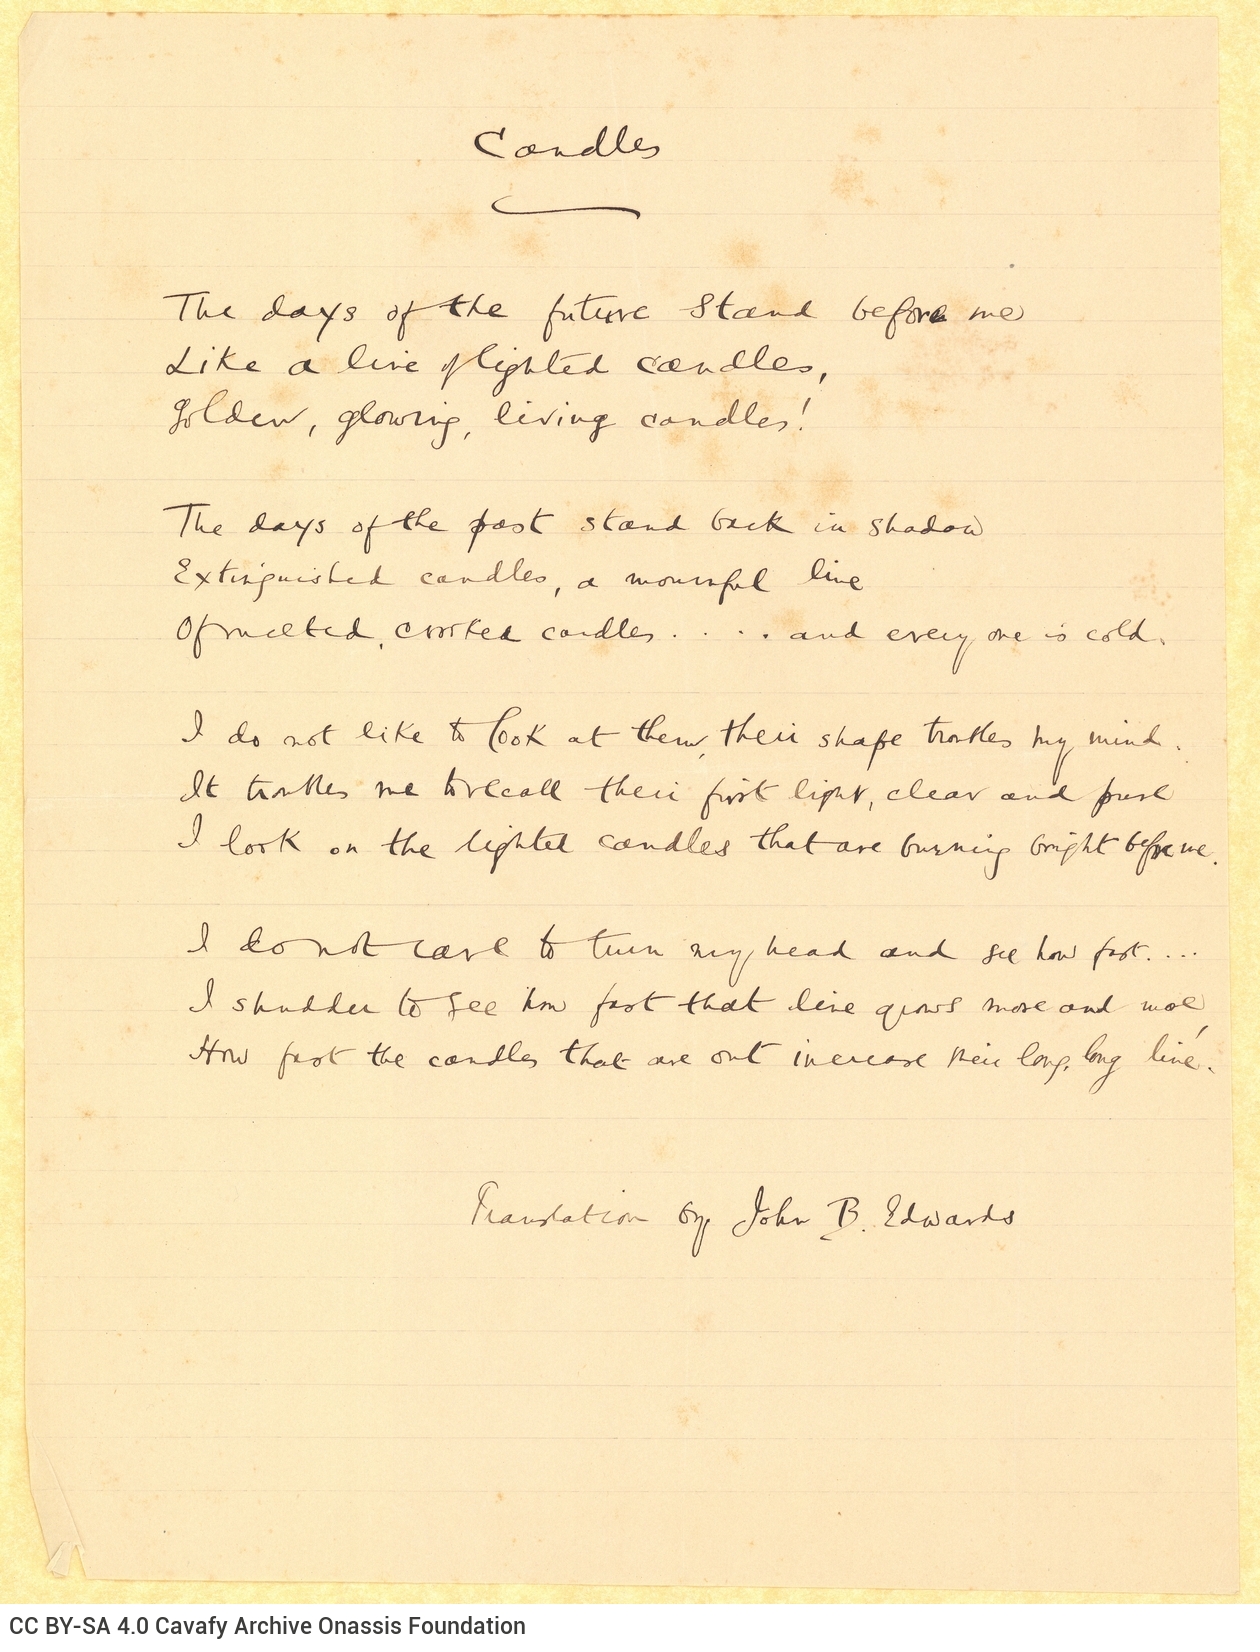 Candles
The days of the future stand before me
Like a line of lighted candles,
Golden, glowing, living candles!
The days of the past stand back in shadow
Extinguished candles, a mournful line
Of melted, crooked candles . . . . and every one is cold.
I do not like to look at them, their shape troubles my mind.
It troubles me to recall their first light, clear and pure
I look on the lighted candles that are burning bright before me.
I do not care to turn my head and see how fast....
I shudder to see how fast that line grows more and more,
How fast the candles that are out increase their long, long line.
Translation by John B. Edwards
CC BY-SA 4.0 Cavafy Archive Onassis Foundation